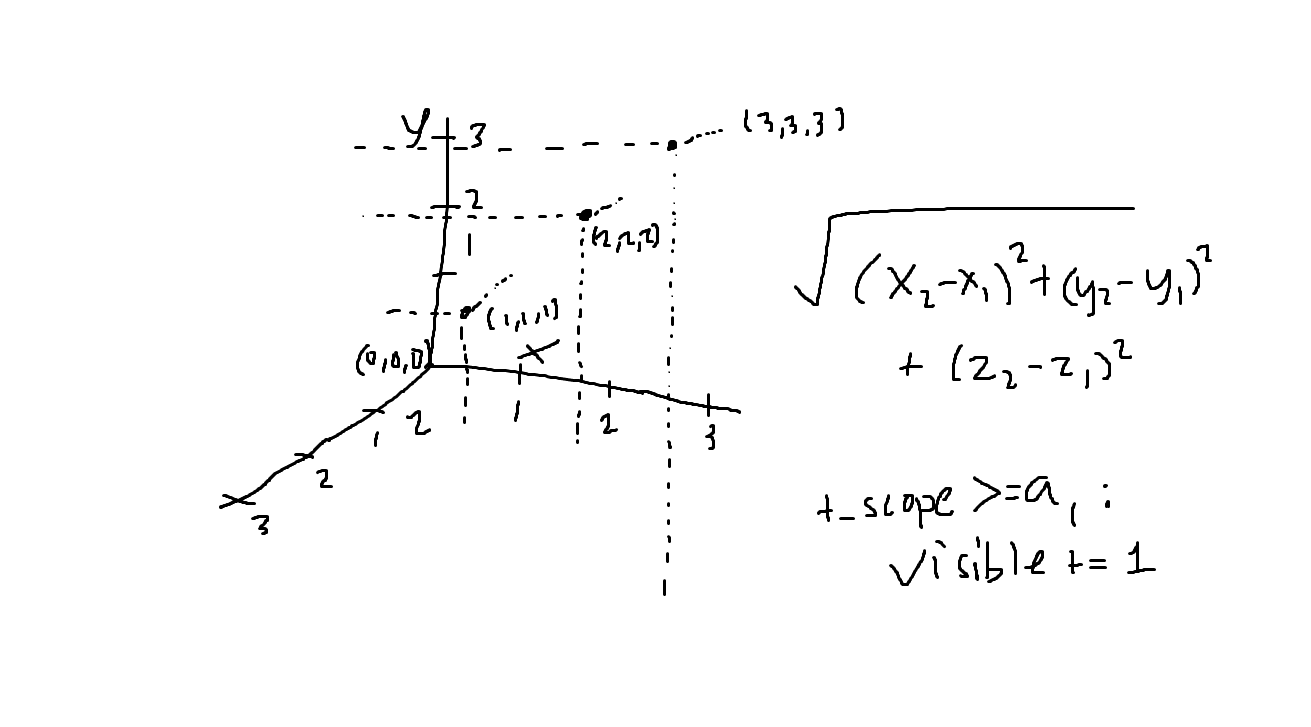 y 3
(3,3,3)
2
1
(2,2,2)
(1,1,1)
x
(0,0,0)
1 2 3
z
1
2
3
√(x₂-x₁)² + (y₂-y₁)²
+ (z₂-z₁)²
t_scope >= a₁ :
visible += 1